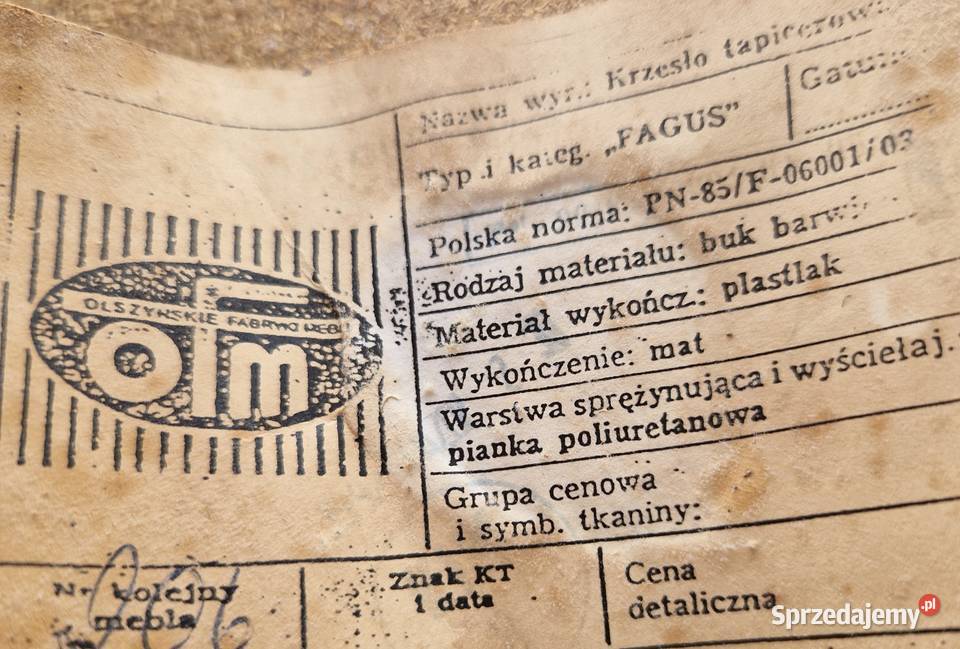 Nazwa wyr.: Krzesło tapicerow
Typ i kateg. „FAGUS”
Polska norma: PN-85/F-06001/03
Rodzaj materiału: buk barwi
Materiał wykończ.: plastlak
Wykończenie: mat
Warstwa sprężynująca i wyściełaj.
pianka poliuretanowa
Grupa cenowa
i symb. tkaniny:
OLSZYŃSKIE FABRYKI MEBLI
OFM
Nr kolejny
mebla
Znak KT
i data
Cena
detaliczna
Sprzedajemy.pl